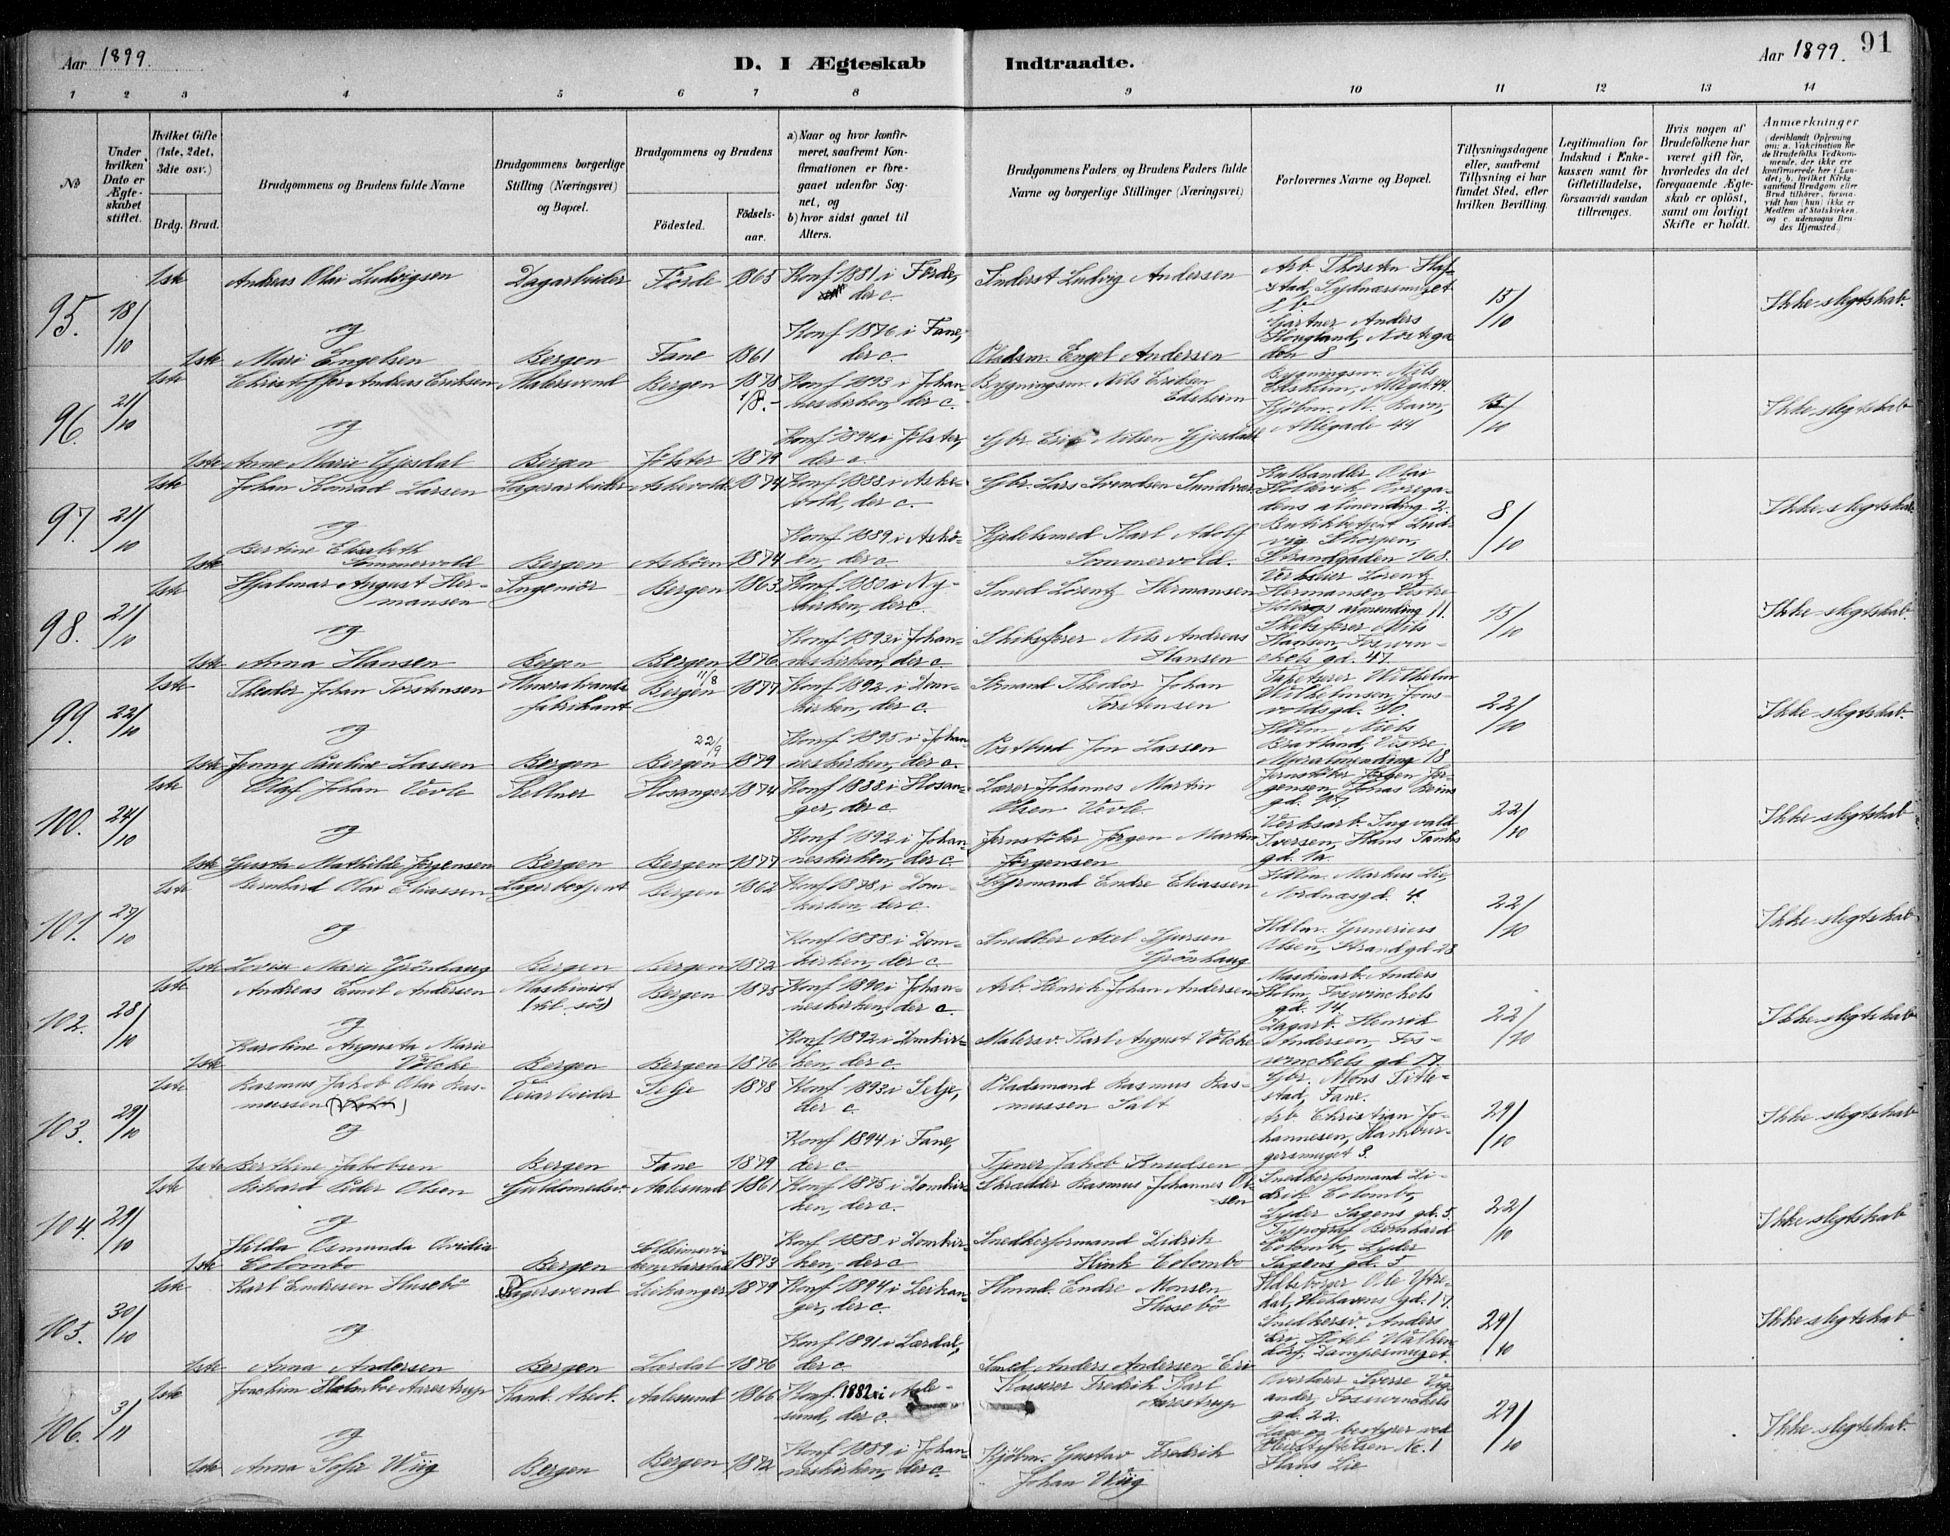 Aar 1899.
D. I Ægteskab Indtraadte.
Aar 1899. 91
1 2 3 4 5 6 7 8 9 10 11 12 13 14
No
Under hvilken Dato er Ægteskabet stiftet.
Hvilket Gifte (1ste, 2det, 3die osv.)
Brdg. Brud.
Brudgommens og Brudens fulde Navne
Brudgommens borgerlige Stilling (Næringsvei) og Bopæl.
Brudgommens og Brudens
Födested.
Födselsaar.
a) Naar og hvor konfirmeret, saafremt Konfirmationen er foregaaet udenför Sognet, og
b) hvor sidst gaaet til Alters.
Brudgommens Faders og Brudens Faders fulde Navne og borgerlige Stillinger (Næringsvei)
Forlovernes Navne og Bopæl.
Tillysningsdagene eller, saafremt Tillysning ei har fundet Sted, efter hvilken Bevilling.
Legitimation for Indskud i Enkekassen samt for Giftetilladelse, forsaavidt saadan tiltrænges.
Hvis nogen af Brudefolkene har været gift för, hvorledes da det foregaaende Ægteskab er oplöst, samt om lovligt Skifte er holdt.
Anmærkninger
95. 18/10 1ste Andreas Olai Ludvigsen Dagarbeider Förde 1865 Konf 1881 i Förde, der c. Inderst Ludvig Andersen Arb. Thorsten Hafstad, Sydnæssmuget 15/10 Ikke slegtskab.
og
1ste Mari Engelsen Bergen Fane 1861 Konf 1876 i Fane, der c. Pladsm. Engel Andersen Gartner Anders Hougland, Nöstegaden 8
96. 21/10 1ste Christoffer Andreas Eriksen Malersvend Bergen 1878 1/8 Konf 1893 i Johanneskirken, der c. Bygningsm. Nils Eriksen Edsheim Bygningsm. Nils Edsheim, Allegd. 44 15/10 Ikke slegtskab
og
1ste Anne Marie Gjesdal Bergen Jölster 1879 Konf 1894 i Jölster, der c. Gbr. Erik Nilsen Gjesdal Kjöbm. M. Ravn, Allegade 44
97. 21/10 1ste Johan Konrad Larsen Lagerarbeider Askevold 1874 Konf 1888 i Askevold, der c. Gbr. Lars Svendsen Sundvær Olai Holevik, Övregadens almending 2. 8/10 Ikke slegtskab
og
1ste Bertine Elisabeth Sommervold Bergen Asköen 1874 Konf 1889 i Asköen, der c. Kjedelsmed Karl Adolf Sommervold. Butikbetjent Ludvig Thorsen, Strandgaden 168.
98. 21/10 1ste Hjalmar August Hermansen Ingeniör Bergen 1863 Konf 1880 i Nykirken, der c. Smed Lorentz Hermansen Verkseier Lorentz Hermansen, Vestre Holbergs almending 11. 15/10 Ikke slegtskab.
og
1ste Anna Hansen Bergen Bergen 1876 Konf 1893 i Johanneskirken, der c. Skibsförer Nils Andreas Hansen Skibsförer Nils Hansen, Foswinckels gd. 47.
99. 22/10 1ste Theodor Johan Torstensen Mineralvandsfabrikant Bergen 11/8 1877 Konf 1892 i Domkirken, der c. Theodor Johan Torstensen Tapetserer Wilhelm Wilhelmsen, Jonsvoldsgd. 10. 22/10 Ikke slegtskab.
og
1ste Jenny Pauline Lassen Bergen Bergen 22/9 1879 Konf 1895 i Johanneskirken, der c. Postbud Jon Lassen Hdlm. Niels Bratland, Vestre Muralmending 18
100. 24/10 1ste Olaf Johan Vevle Kellner Hosanger 1874 Konf 1888 i Hosanger, der c Lærer Johannes Martin Olsen Vevle. Jernstöber Jörgen Jörgensen, Jonas Reins gd. 47. 22/10 Ikke slegtskab
og
1ste Gusta Mathilde Jörgensen Bergen Bergen 1877 Konf 1892 i Johanneskirken, der c. Jernstöber Jörgen Martin Jörgensen Verksarb. Ingvald Iversen, Hans Tanks gd. 1a.
101. 27/10 1ste Bernhard Olai Eliassen Lagerbetjent Bergen 1862 Konf 1878 i Domkirken, der c. Styrmand Endre Eliassen Hdlm. Markus Lie, Nordnæsgd. 4. 22/10 Ikke slegtskab
og
1ste Lovise Marie Grönhaug Bergen Bergen 1872 Konf 1888 i Domkirken, der c. Snedker Axel Grönhaug Hdlm. Olsen, Strandgd. 28
102. 28/10 1ste Andreas Emil Andersen Maskinist (til sös) Bergen 1875 Konf 1890 i Johanneskirken, der c. Arb. Henrik Johan Andersen Maskinarb. Anders Holm, Foswinckels gd. 14. 22/10 Ikke slegtskab
og
1ste Karoline Augusta Marie Völcke Bergen Bergen 1876 Konf 1892 i Domkirken, der c. Malersv. Karl August Völcke Dagarb. Henrik Andersen, Foswinckels gd. 17.
103. 29/10 1ste Rasmus Jakob Olai Rasmussen Veiarbeider Selje 1878 Konf 1893 i Selje, der c Pladsmand Rasmus Rasmussen Salt Gbr. Mons Titlestad, Fane. 29/10 Ikke slegtskab
og
1ste Berthine Jakobsen Bergen Fane 1879 Konf 1894 i Fane, der c. Tjener Jakob Knudsen Arb. Christian Johannesen, Hamburgersmuget 3.
104. 29/10 1ste Rikard Peder Olsen Guldsmedsv. Aalesund 1861 Konf 1875 i Domkirken, der c. Skrædder Rasmus Johannes Olsen Snedkerformand Didrik Colombo, Lyder Sagens gd. 5. 22/10 Ikke slegtskab
og
1ste Hilda Osmunda Ovidia Colombo Bergen 1873 Konf 1888 i Domkirken, der c. Snedkerformand Didrik Hink Colombo Typograf Bernhard Colombo, Lyder Sagens gd. 5
105. 30/10 1ste Karl Endresen Husebö Bagersvend Leikanger 1879 Konf 1894 i Leikanger, der c. Husmd. Endre Monsen Husebö Hdlsborger Ole Ytredal, Welhavens gd. 17. 29/10 Ikke slegtskab
og
1ste Anna Andersen Bergen Lærdal 1876 Konf 1891 i Lærdal, der c. Smed Anders Andersen Eri Snedkersv. Anders Eri, Hotel Walkendorf, Dampesmuget.
106. 3/11 1ste Joachim Holmboe Aarestrup Kand. Athol. Aalesund 1866 Konf. 1882 i Aalesund, der c. Kasserer Fredrik Karl Aarestrup Overlærer Sverre Vigander, Foswinckels gd. 22. 29/10 Ikke slegtskab.
og
1ste Anna Sofie Wiig Bergen Bergen 1872 Konf 1889 i Johanneskirken, der c Kjöbm. Gustav Fredrik Johan Wiig bestyrer ved Pleiestiftelsen No. 1 Hans Lie